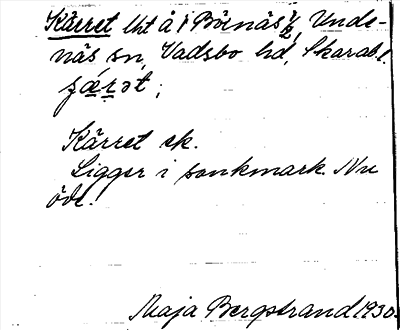 Kärret lht å 1 Bölnäs 1/2, Unde-
näs sn, Vadsbo hd, Skarab. l.
ʃæ̀rət;
Kärret ek.
Ligger i sankmark. Nu
öde.
Maja Bergstrand 1930.